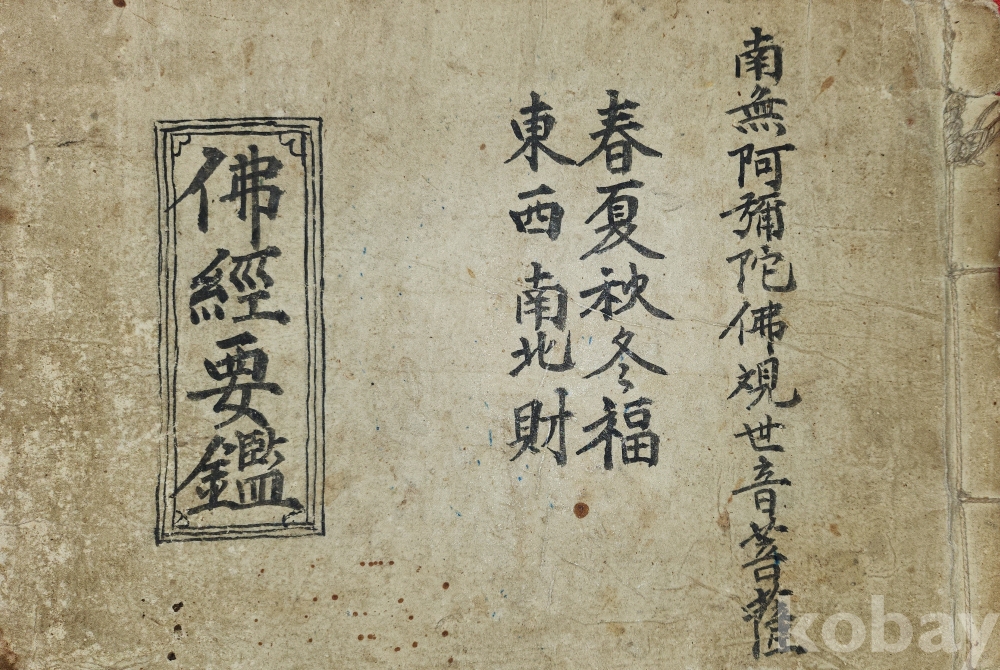 南無阿彌陀佛視世音菩薩
春夏秋冬福
東西南北財
佛經要鑑
kobay